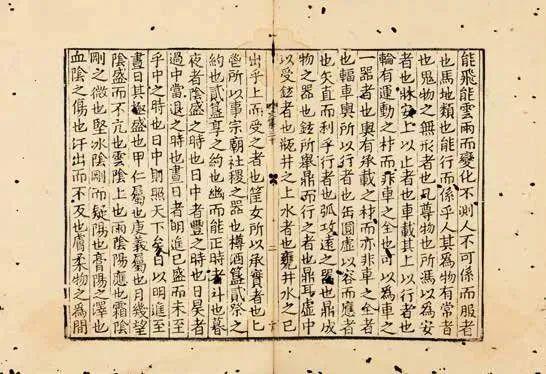 能飛能雲雨而變化不測人不可係而服者
也馬地類也能行而係乎人其爲物有常者
也鬼物之無形者也几尊物也所馮以爲安
者也牀安上以止者也車載其上以行者也
輪有運動之材而非車之全也可以爲車之
一器者也輿有承載之材而亦非車之全者
也輻車輿所以行者也缶圓虛以容而應者
也矢直而利乎行者也弧攻遠之器也鼎成
物之器也鉉所舉鼎而行之者也鼎耳虛中
以受鉉者也瓶井之上水者也甕井水之已
出乎上而受之者也筐女所以承實者也匕
鬯所以事宗廟社稷之器也樽酒簋貳祭之
約也貳簋享之約也幽而能正時者斗也暮
夜者陰盛之時也日中者豐之時也日昃者
過中當退之時也晝日者明進已盛而未至
乎中之時也日中則照天下矣日以明進至
晝日其極盛也甲仁屬也庚義屬也月幾望
陰盛而不亢也雲陰上也雨陰陽應也霜陰
剛之微也堅冰陰剛而疑陽也膏陽之澤也
血陰之傷也汗出而不反也膚柔物之爲間